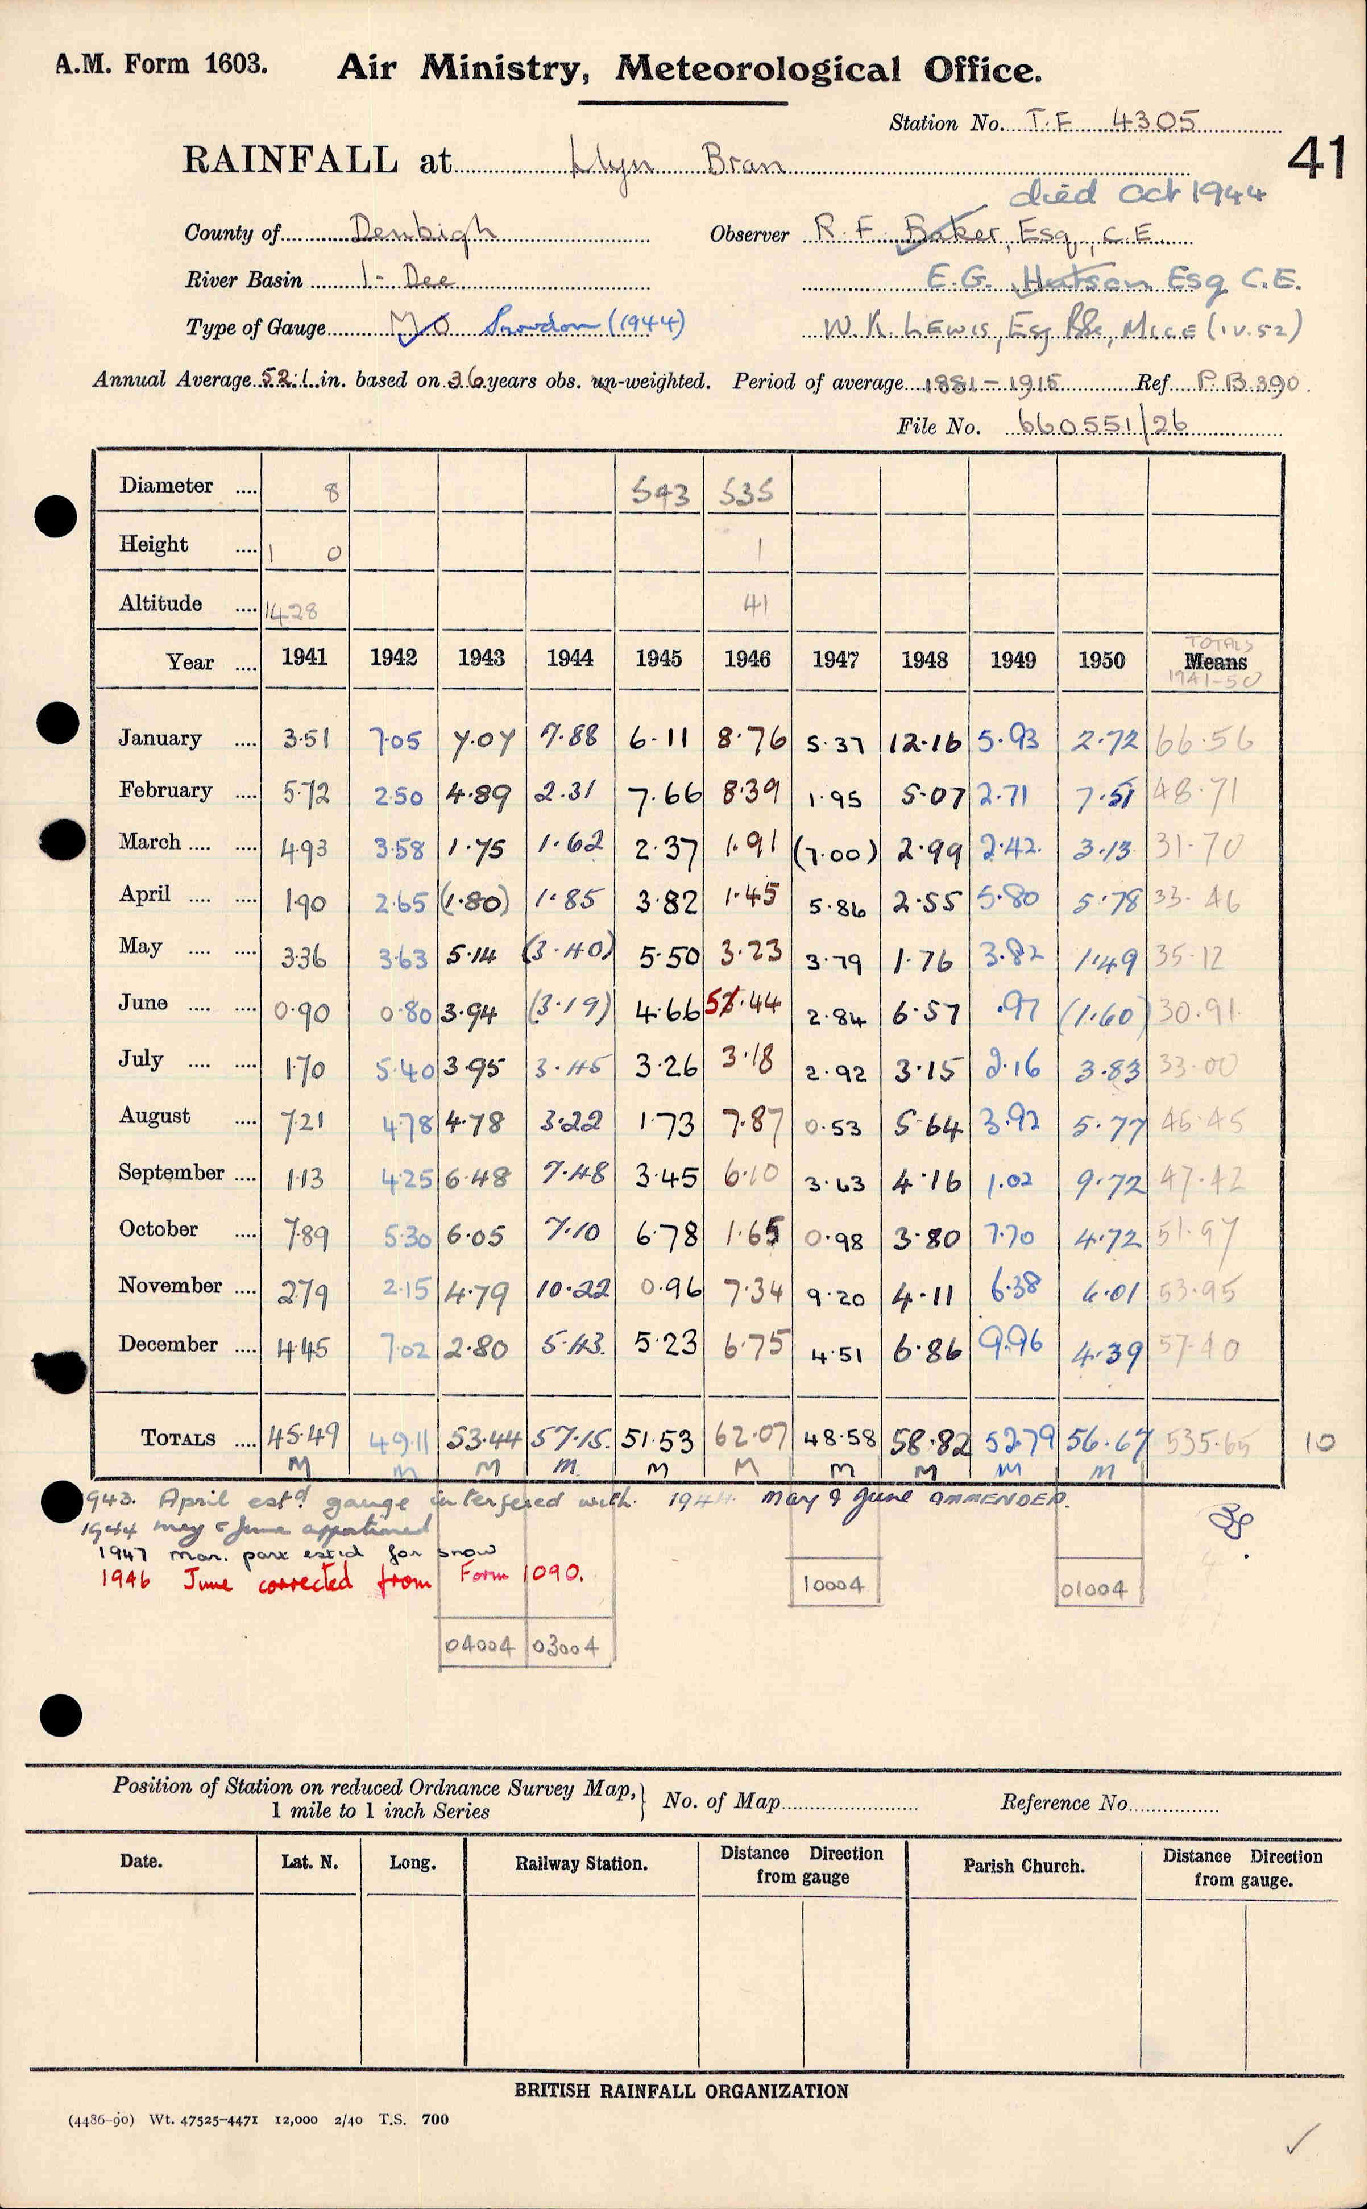 A.M. Form 1603. Air Ministry, Meteorological Office.
Station No. T.F 4305
41
RAINFALL at Llyn Bran
died Oct 1944
County of Denbigh Observer R. F. Baker, Esq, C.E.
River Basin 1- Dee E.G. Hutson Esq C.E.
Type of Gauge MO Snowdon (1944) W. K. LEWIS, Esq BSc, MICE (1.V.52)
Annual Average 52.1 in. based on 36 years obs. un-weighted. Period of average 1881-1915 Ref P.B.390
File No. 660551/26
Diameter 8 543 535
Height 1 0 1
Altitude 1428 41
TOTALS
Year 1941 1942 1943 1944 1945 1946 1947 1948 1949 1950 Means
1941-50
January 3.51 7.05 7.07 7.88 6.11 8.76 5.37 12.16 5.93 2.72 66.56
February 5.72 2.50 4.89 2.31 7.66 8.39 1.95 5.07 2.71 7.51 48.71
March 4.93 3.58 1.75 1.62 2.37 1.91 (7.00) 2.99 2.42 3.13 31.70
April 1.90 2.65 (1.80) 1.85 3.82 1.45 5.86 2.55 5.80 5.78 33.46
May 3.36 3.63 5.14 (3.40) 5.50 3.23 3.79 1.76 3.82 1.49 35.12
June 0.90 0.80 3.94 (3.19) 4.66 5.44 2.84 6.57 .97 (1.60) 30.91
July 1.70 5.40 3.95 3.45 3.26 3.18 2.92 3.15 2.16 3.83 33.00
August 7.21 4.78 4.78 3.22 1.73 7.87 0.53 5.64 3.92 5.77 46.45
September 1.13 4.25 6.48 7.48 3.45 6.10 3.63 4.16 1.02 9.72 47.42
October 7.89 5.30 6.05 7.10 6.78 1.65 0.98 3.80 7.70 4.72 51.97
November 2.79 2.15 4.79 10.22 0.96 7.34 9.20 4.11 6.38 6.01 53.95
December 4.45 7.02 2.80 5.43 5.23 6.75 4.51 6.86 9.96 4.39 57.40
TOTALS 45.49 49.11 53.44 57.15 51.53 62.07 48.58 58.82 52.79 56.67 535.65 10
M M M M M M M M M M
943. April estd gauge interfered with. 1944. May & June AMMENDED.
1944 May & June apportioned
1947 Mar. part estd for snow
1946 June corrected from Form 1090.
10004 01004
04004 03004
Position of Station on reduced Ordnance Survey Map, } No. of Map Reference No
1 mile to 1 inch Series
Date. Lat. N. Long. Railway Station. Distance Direction from gauge Parish Church. Distance Direction from gauge.
BRITISH RAINFALL ORGANIZATION
(4486-90) Wt. 47525-4471 12,000 2/40 T.S. 700